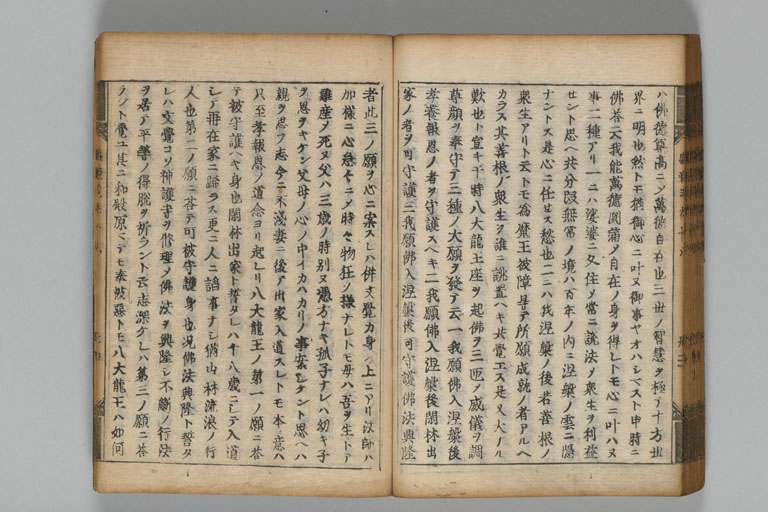 ハ佛德尊高ニメ萬德自在也三世ノ智慧ヲ極テ十方世
界ニ明也然トモ猶御心ニ叶ヌ御事ヤオハシマスト申時ニ
佛答天我能萬德圓滿ノ自在ノ身ヲ得レトモ心ニ叶ハヌ
事二種アリ一ニハ娑婆ニ久住メ常ニ說法メ衆生ヲ利益
セント思ヘ共分段無常ノ境ハ百年ノ内ニ涅槃ノ雲ニ隱
ナントス是心ニ任セス愁也二ニハ我涅槃ノ後若善根ノ
衆生アリト云トモ為魔王被障㝵テ所願成就ノ者アルヘ
カラス其善根ノ衆生ヲ誰ニ誂置ヘキ共覺エス是又大ナル
歎也ト宣キ于時八大龍王座ヲ起佛ヲ三匝メ威儀ヲ調
尊顔ヲ奉守テ三種ノ大願ヲ發テ云一我願佛入涅槃後
孝養報恩ノ者ヲ守護スヘキ二我願佛入涅槃後閑林出
家ノ者ヲ可守護三我願佛入涅槃後可守護佛法興隆
者此三ノ願ヲ心ニ案スレハ併文覺カ身ノ上ニアリ法師ハ
加樣ニ心急キニメ時々物狂シ樣ナレトモ母ハ吾ヲ生トテ
難産メ死ヌ父ハ三歳ノ時別ヌ憑方ナキ孤子ナレハ幼キ子
ヲ思ヲキケン父母ノ心ノ中イカハカリノ事案シケント思ヘハ
親ヲ思フ志今ニ不淺妻ニ後テ出家入道スレトモ本意ハ
只至孝報恩ノ道念ヨリ起レリ八大龍王ノ第一ノ願ニ答
テ被守護ヘキ身也閑林出家ト誓タレハ十八歳ニシテ入道
シテ再在家ニ歸ラス更ニ人ニ諂事ナシ猶山林流浪ノ行
人也第二ノ願ニ答テ可被守護身也況佛法興隆ト誓タ
レハ文覺コソ神護寺ヲ修理メ佛法ヲ興隆シ不斷ノ行法
ヲ居テ平等ノ得脫ヲ祈ラント云志深ケレハ第三ノ願ニ答
ラント覺エ甚ニ和殿原コソテモ奉被惡トモ八大龍王ハ如何